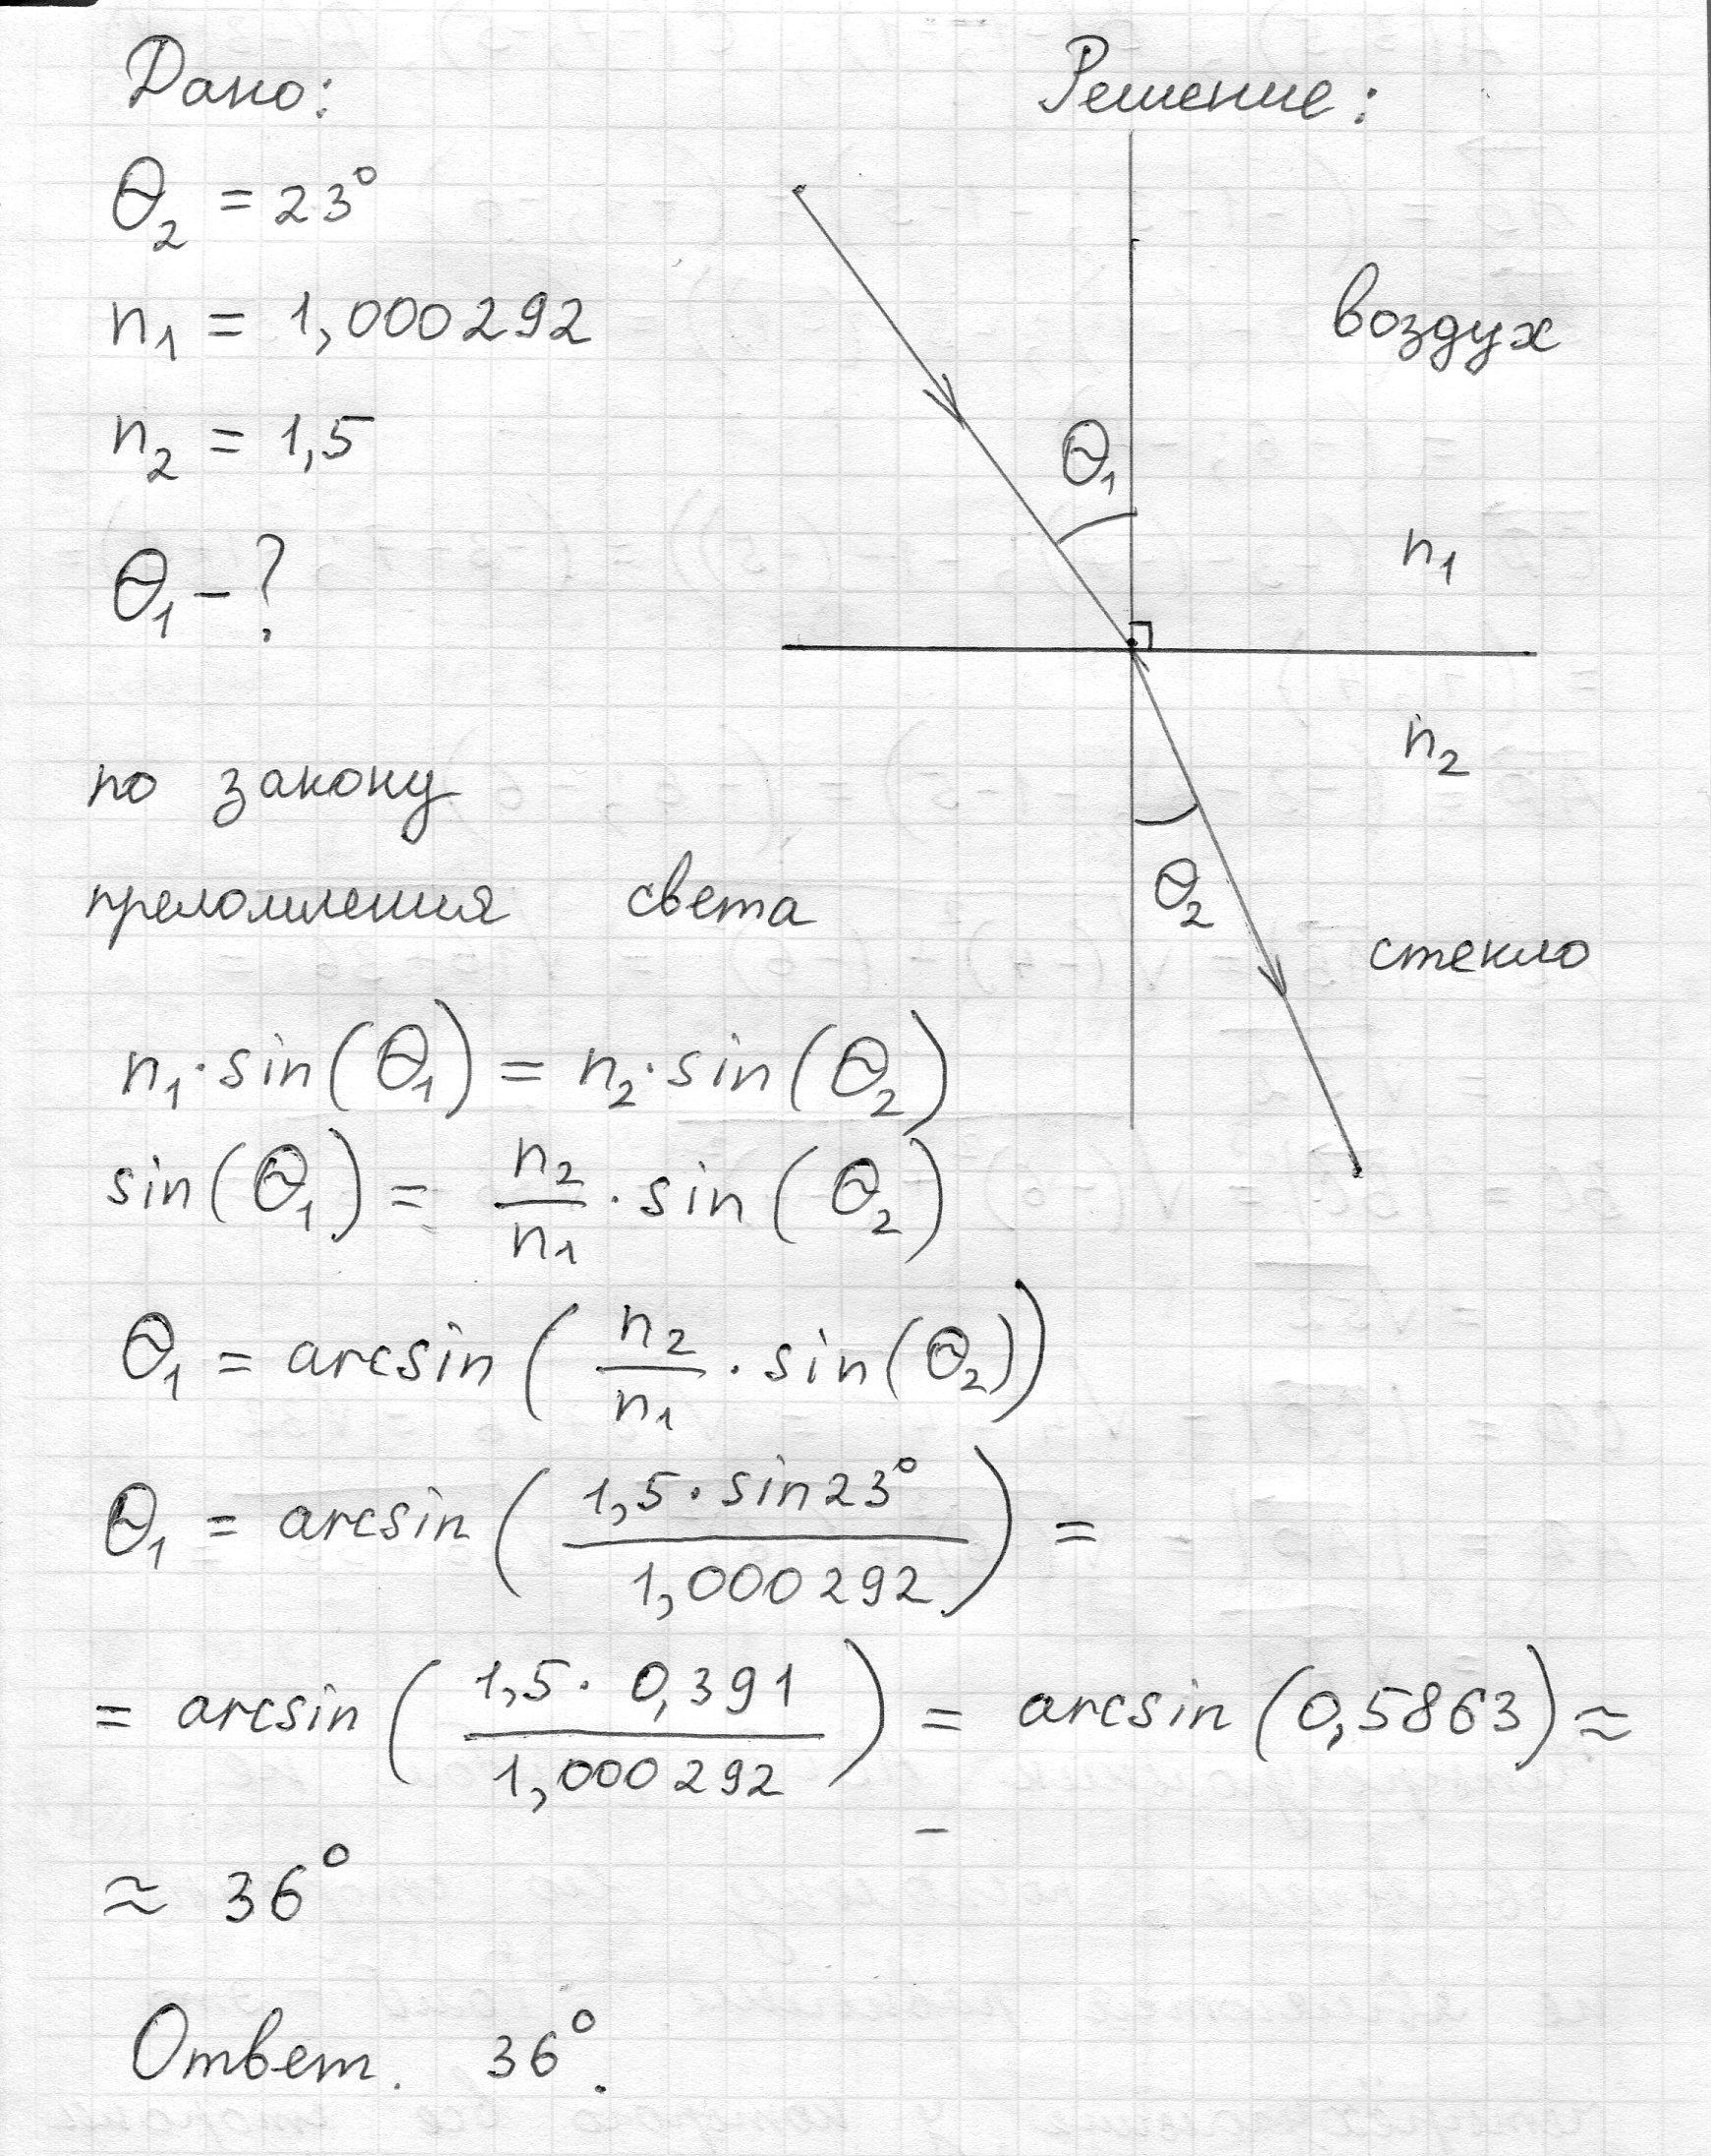 Дано:
θ₂ = 23°
n₁ = 1,000292
n₂ = 1,5
θ₁ – ?
Решение:
воздух
θ₁
n₁
n₂
θ₂
стекло
по закону
преломления света
n₁·sin(θ₁) = n₂·sin(θ₂)
sin(θ₁) = n₂/n₁ · sin(θ₂)
θ₁ = arcsin(n₂/n₁ · sin(θ₂))
θ₁ = arcsin(1,5·sin23°/1,000292) =
= arcsin(1,5·0,391/1,000292) = arcsin(0,5863) ≈
≈ 36°
Ответ. 36°.